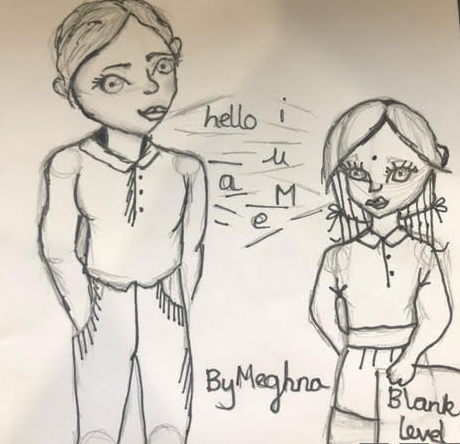 hello i
u
a M
e
By Meghna
Blank
level